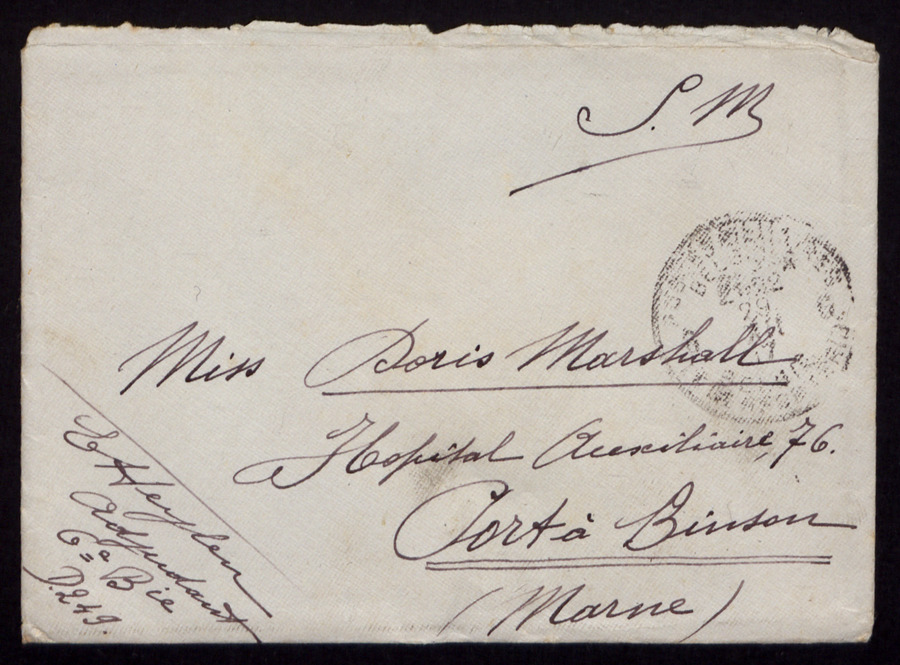 S. M
Miss Doris Marshall
Hopital Auxiliaire, 76.
Port à Binson
(Marne)
E Heylen
Adjudant
6ª Bie
D.249.